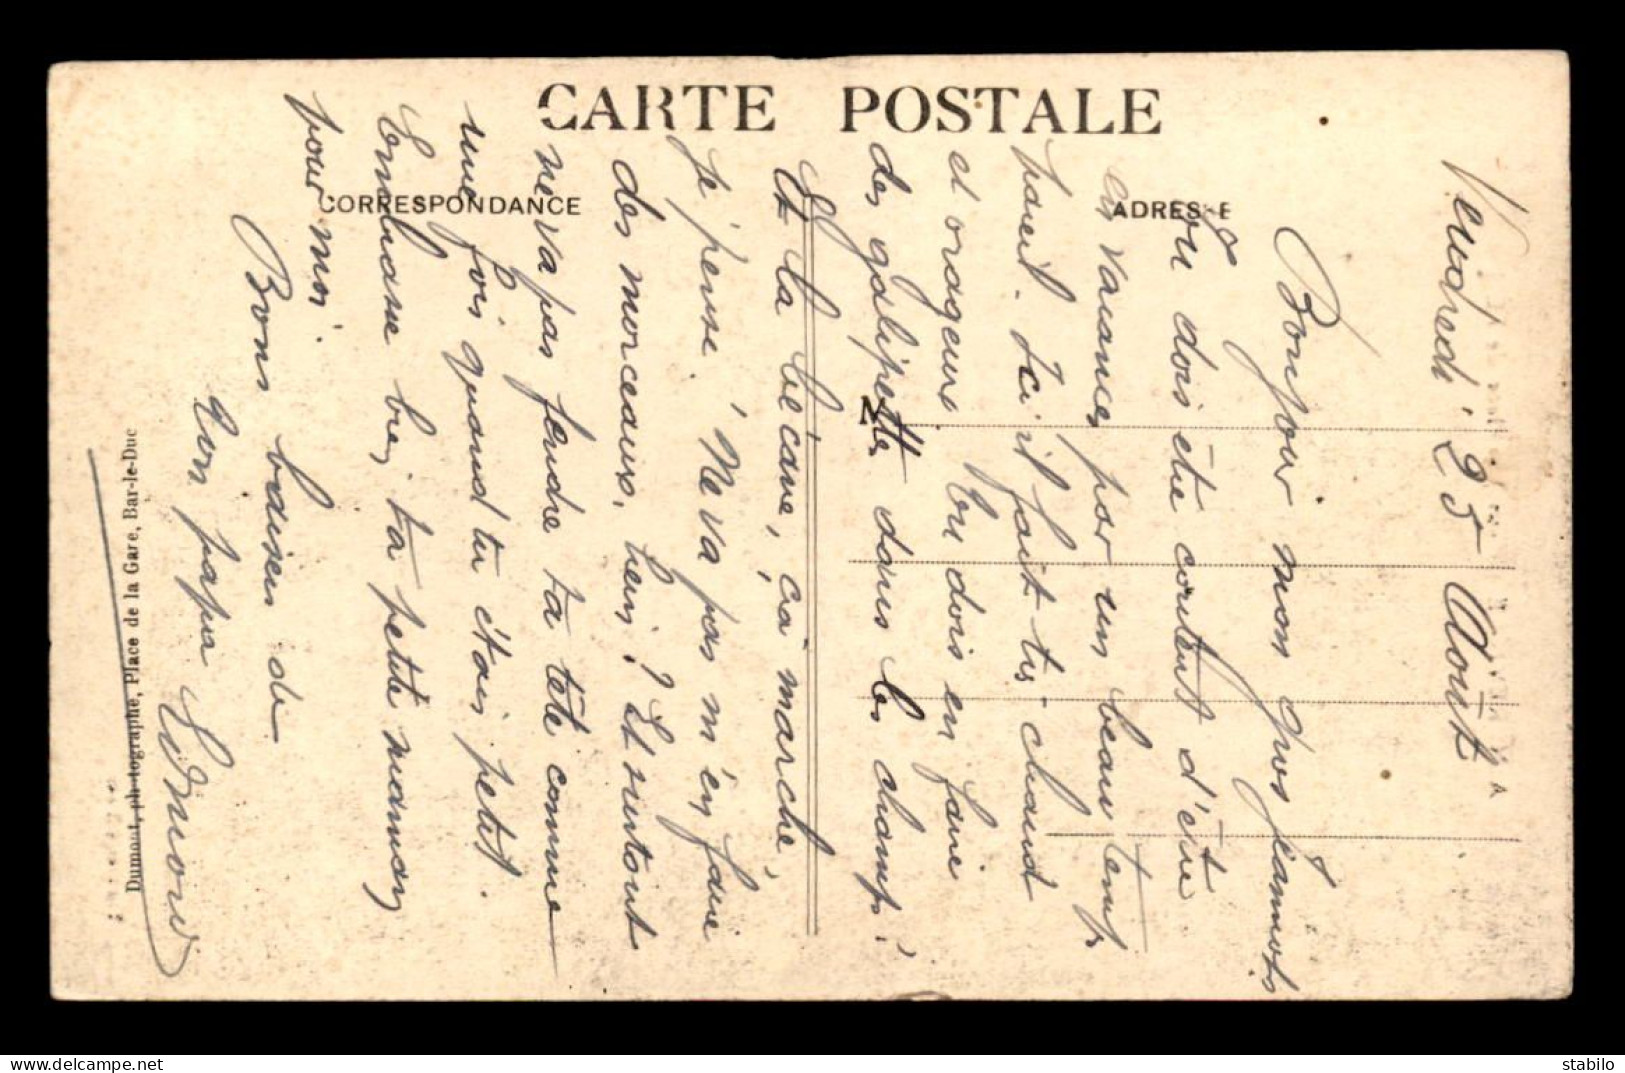 CARTE POSTALE
CORRESPONDANCE
ADRESSE
Vendredi 25 Août
Bonjour mon gros
Tu dois être content d'être
en vacances par un beau temps
pareil. Ici il fait très chaud
et orageux Tu dois en faire
des galipettes dans les champs!
Et la bécane, ça marche,
je pense! Ne va pas m'en faire
des morceaux, hein? Et surtout
ne va pas fendre ta tête comme
une fois quand tu étais petit.
Embrasse bien ta petite maman
pour moi.
Bons baisers de
ton papa
M
Dumont, photographe, Place de la Gare, Bar-le-Duc
stabilo